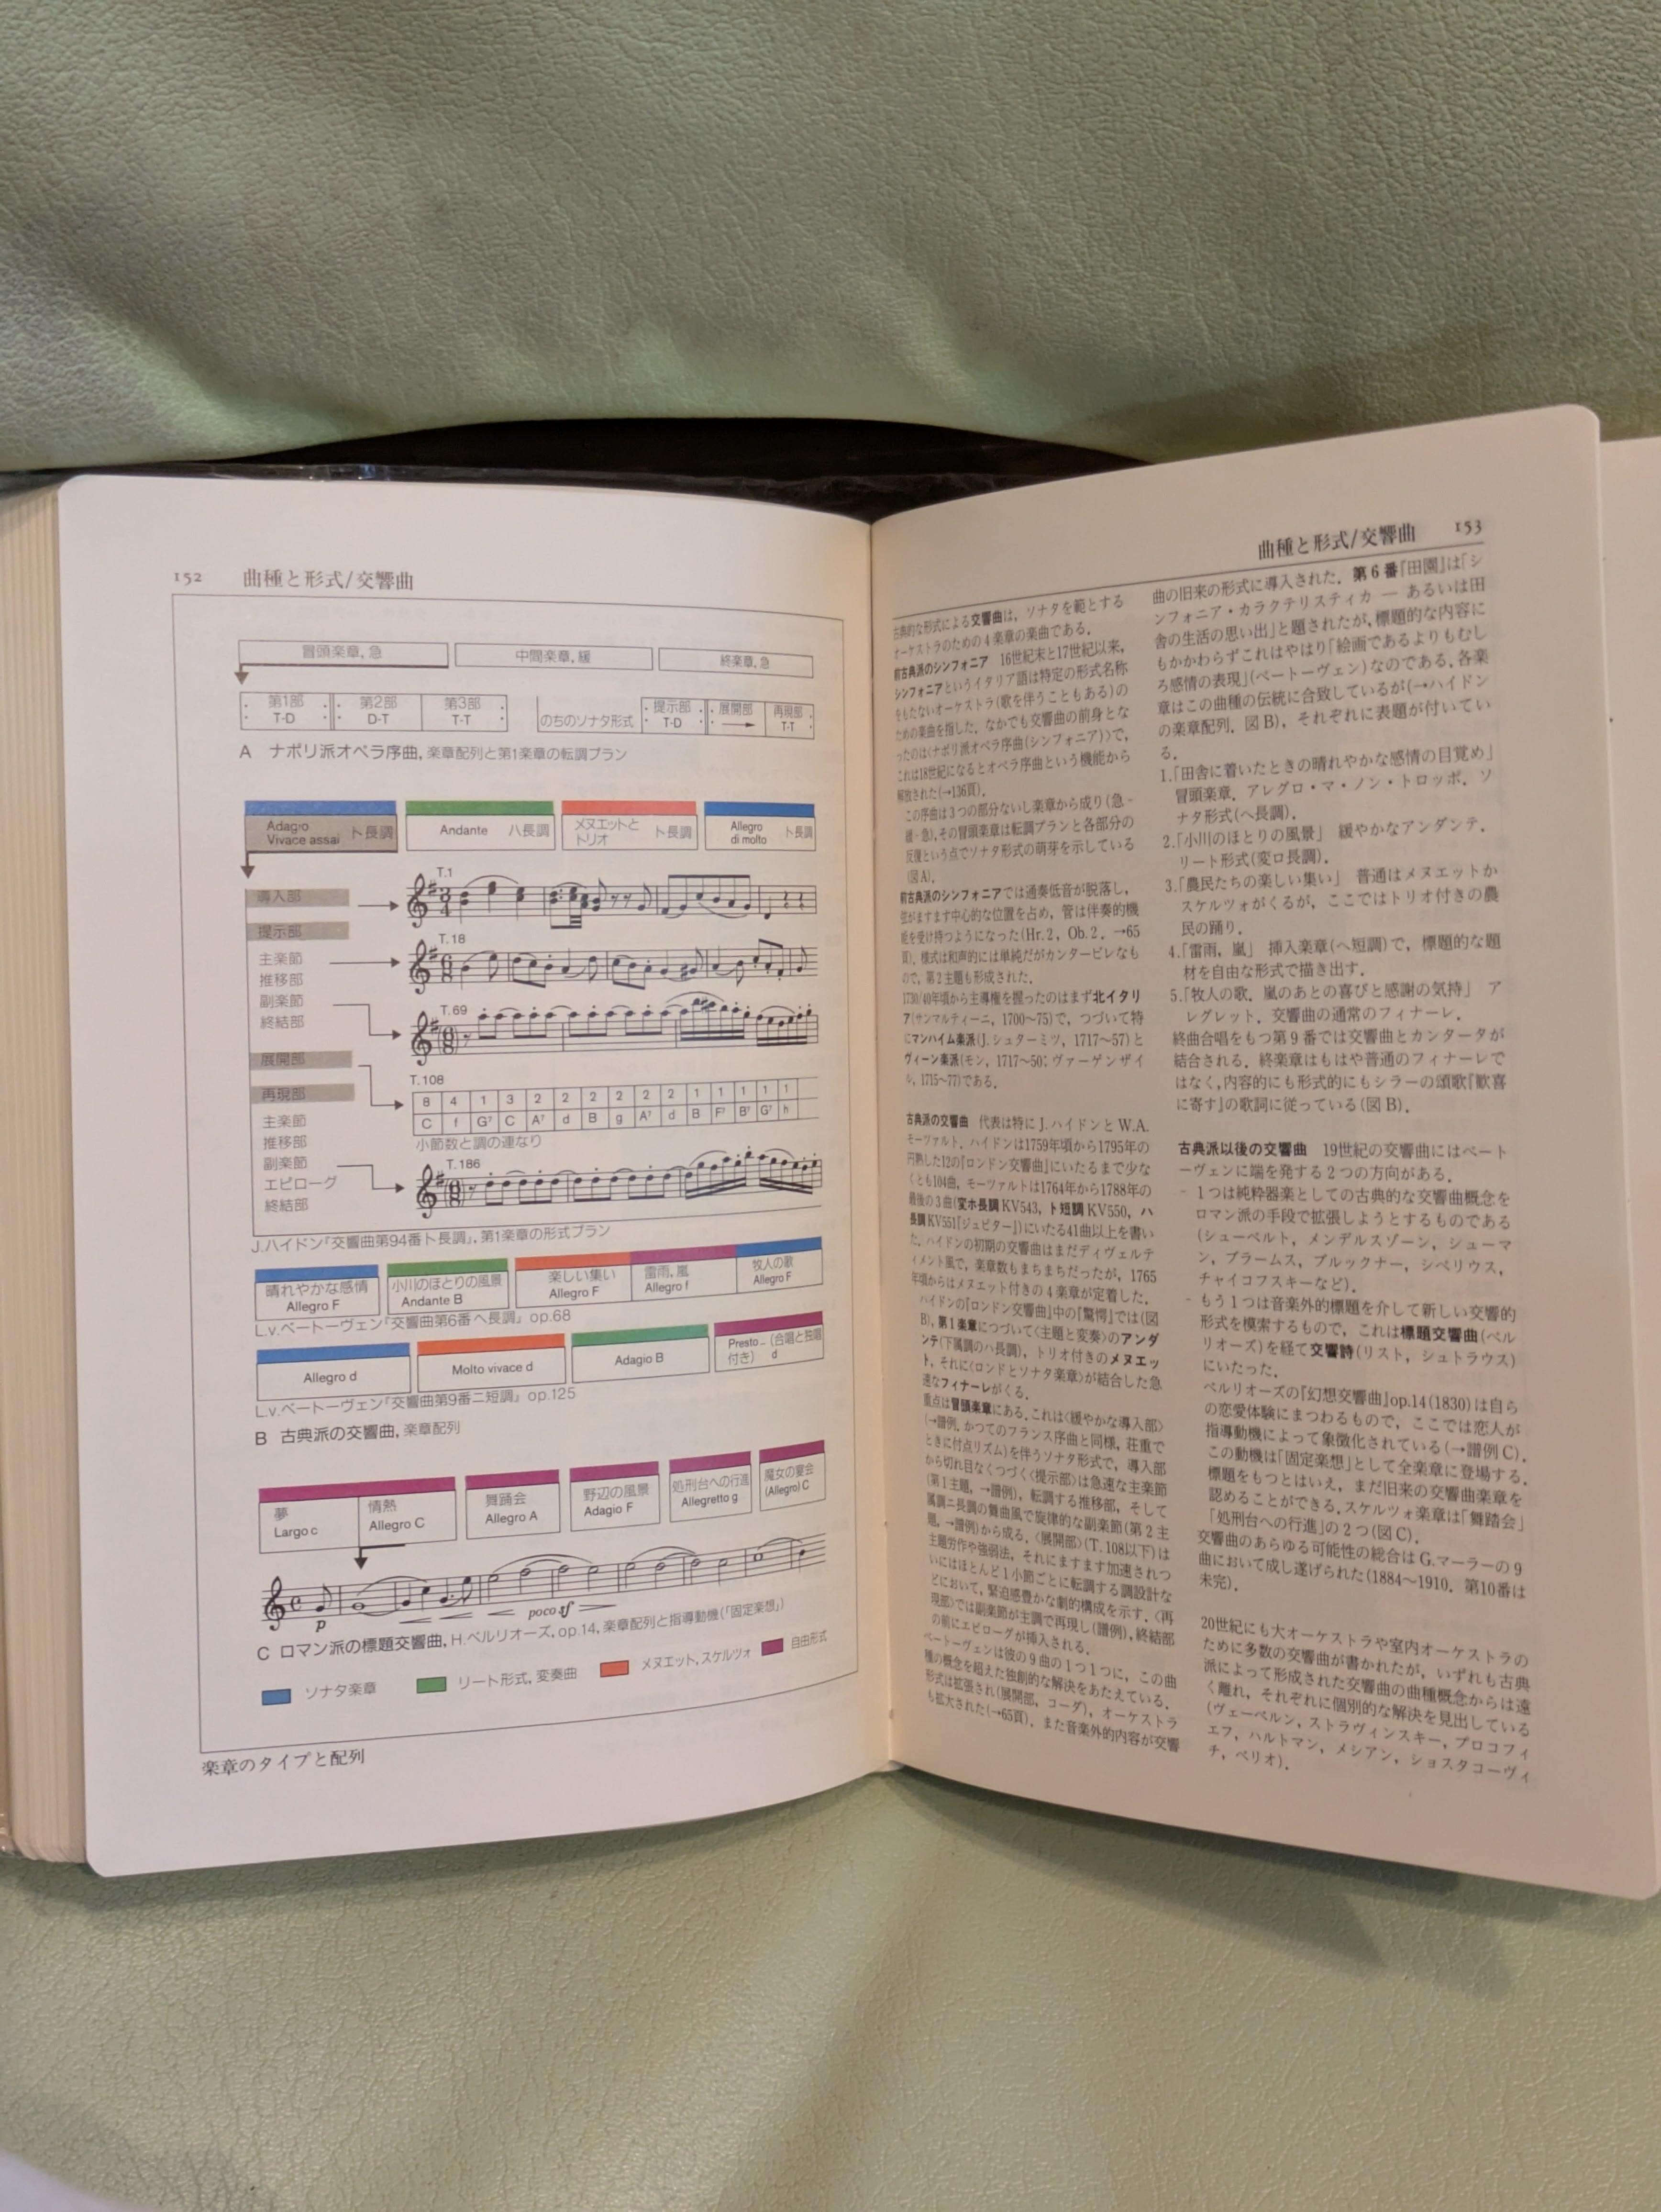 152 曲種と形式/交響曲
冒頭楽章, 急
中間楽章, 緩
終楽章, 急
第1部 T-D
第2部 D-T
第3部 T-T
のちのソナタ形式
提示部 T-D
展開部
再現部 T-T
A ナポリ派オペラ序曲, 楽章配列と第1楽章の転調プラン
Adagio Vivace assai ト長調
Andante ハ長調
メヌエットとトリオ ト長調
Allegro di molto ト長調
導入部
T.1
提示部
T.18
主楽節
推移部
副楽節
終結部
T.69
展開部
T.108
8 4 1 3 2 2 2 2 2 2 1 1 1 1 1
C f G⁷ C A⁷ d B g A⁷ d B F⁷ B⁷ G⁷ h
小節数と調の連なり
再現部
主楽節
推移部
副楽節
エピローグ
終結部
T.186
J.ハイドン『交響曲第94番ト長調』, 第1楽章の形式プラン
晴れやかな感情 Allegro F
小川のほとりの風景 Andante B
楽しい集い Allegro F
雷雨, 嵐 Allegro f
牧人の歌 Allegro F
L.v.ベートーヴェン『交響曲第6番ヘ長調』op.68
Allegro d
Molto vivace d
Adagio B
Presto – (合唱と独唱付き) d
L.v.ベートーヴェン『交響曲第9番ニ短調』op.125
B 古典派の交響曲, 楽章配列
夢 Largo c
情熱 Allegro C
舞踊会 Allegro A
野辺の風景 Adagio F
処刑台への行進 Allegretto g
魔女の宴会 (Allegro) C
p
poco sf
C ロマン派の標題交響曲, H.ベルリオーズ, op.14, 楽章配列と指導動機(「固定楽想」)
ソナタ楽章
リート形式, 変奏曲
メヌエット, スケルツォ
自由形式
楽章のタイプと配列
曲種と形式/交響曲 153
古典的な形式による交響曲は，ソナタを範とする
オーケストラのための4楽章の楽曲である．
前古典派のシンフォニア 16世紀末と17世紀以来，
シンフォニアというイタリア語は特定の形式名称
をもたないオーケストラ(歌を伴うこともある)の
ための楽曲を指した．なかでも交響曲の前身とな
ったのは〈ナポリ派オペラ序曲(シンフォニア)〉で，
これは18世紀になるとオペラ序曲という機能から
解放された(→136頁)．
この序曲は3つの部分ないし楽章から成り(急‐
緩‐急)，その冒頭楽章は転調プランと各部分の
反復という点でソナタ形式の萌芽を示している
(図A)．
前古典派のシンフォニアでは通奏低音が脱落し，
弦がますます中心的な位置を占め，管は伴奏的機
能を受け持つようになった(Hr.2，Ob.2．→65
頁)．様式は和声的には単純だがカンタービレなも
ので，第2主題も形成された．
1730/40年頃から主導権を握ったのはまず北イタリ
ア(サンマルティーニ，1700〜75)で，つづいて特
にマンハイム楽派(J.シュターミツ，1717〜57)と
ヴィーン楽派(モン，1717〜50；ヴァーゲンザイ
ル，1715〜77)である．
古典派の交響曲 代表は特にJ.ハイドンとW.A.
モーツァルト．ハイドンは1759年頃から1795年の
円熟した12の『ロンドン交響曲』にいたるまで少な
くとも104曲，モーツァルトは1764年から1788年の
最後の3曲(変ホ長調KV543，ト短調KV550，ハ
長調KV551『ジュピター』)にいたる41曲以上を書い
た．ハイドンの初期の交響曲はまだディヴェルテ
ィメント風で，楽章数もまちまちだったが，1765
年頃からはメヌエット付きの4楽章が定着した．
ハイドンの『ロンドン交響曲』中の『驚愕』では(図
B)，第1楽章につづいて〈主題と変奏〉のアンダ
ンテ(下属調のハ長調)，トリオ付きのメヌエッ
ト，それに〈ロンドとソナタ楽章〉が結合した急
速なフィナーレがくる．
重点は冒頭楽章にある．これは〈緩やかな導入部〉
(→譜例．かつてのフランス序曲と同様，荘重で
ときに付点リズム)を伴うソナタ形式で，導入部
から切れ目なくつづく〈提示部〉は急速な主楽節
(第1主題，→譜例)，転調する推移部，そして
属調ニ長調の舞曲風で旋律的な副楽節(第2主
題，→譜例)から成る．〈展開部〉(T.108以下)は
主題労作や強弱法，それにますます加速されつ
いにはほとんど1小節ごとに転調する調設計な
どにおいて，緊迫感豊かな劇的構成を示す．〈再
現部〉では副楽節が主調で再現し(譜例)，終結部
の前にエピローグが挿入される．
ベートーヴェンは彼の9曲の1つ1つに，この曲
種の概念を超えた独創的な解決をあたえている．
形式は拡張され(展開部，コーダ)，オーケストラ
も拡大された(→65頁)．また音楽外的内容が交響
曲の旧来の形式に導入された．第6番『田園』は「シ
ンフォニア・カラクテリスティカ ― あるいは田
舎の生活の思い出」と題されたが，標題的な内容に
もかかわらずこれはやはり「絵画であるよりもむし
ろ感情の表現」(ベートーヴェン)なのである．各楽
章はこの曲種の伝統に合致しているが(→ハイドン
の楽章配列．図B)，それぞれに表題が付いてい
る．
1.「田舎に着いたときの晴れやかな感情の目覚め」
冒頭楽章．アレグロ・マ・ノン・トロッポ．ソ
ナタ形式(ヘ長調)．
2.「小川のほとりの風景」 緩やかなアンダンテ．
リート形式(変ロ長調)．
3.「農民たちの楽しい集い」 普通はメヌエットか
スケルツォがくるが，ここではトリオ付きの農
民の踊り．
4.「雷雨，嵐」 挿入楽章(ヘ短調)で，標題的な題
材を自由な形式で描き出す．
5.「牧人の歌．嵐のあとの喜びと感謝の気持」 ア
レグレット．交響曲の通常のフィナーレ．
終曲合唱をもつ第9番では交響曲とカンタータが
結合される．終楽章はもはや普通のフィナーレで
はなく，内容的にも形式的にもシラーの頌歌『歓喜
に寄す』の歌詞に従っている(図B)．
古典派以後の交響曲 19世紀の交響曲にはベート
ーヴェンに端を発する2つの方向がある．
- 1つは純粋器楽としての古典的な交響曲概念を
ロマン派の手段で拡張しようとするものである
(シューベルト，メンデルスゾーン，シューマ
ン，ブラームス，ブルックナー，シベリウス，
チャイコフスキーなど)．
- もう1つは音楽外的標題を介して新しい交響的
形式を模索するもので，これは標題交響曲(ベル
リオーズ)を経て交響詩(リスト，シュトラウス)
にいたった．
ベルリオーズの『幻想交響曲』op.14(1830)は自ら
の恋愛体験にまつわるもので，ここでは恋人が
指導動機によって象徴化されている(→譜例C)．
この動機は「固定楽想」として全楽章に登場する．
標題をもつとはいえ，まだ旧来の交響曲楽章を
認めることができる．スケルツォ楽章は「舞踏会」
「処刑台への行進」の2つ(図C)．
交響曲のあらゆる可能性の総合はG.マーラーの9
曲において成し遂げられた(1884〜1910．第10番は
未完)．
20世紀にも大オーケストラや室内オーケストラの
ために多数の交響曲が書かれたが，いずれも古典
派によって形成された交響曲の曲種概念からは遠
く離れ，それぞれに個別的な解決を見出している
(ヴェーベルン，ストラヴィンスキー，プロコフィ
エフ，ハルトマン，メシアン，ショスタコーヴィ
チ，ベリオ)．